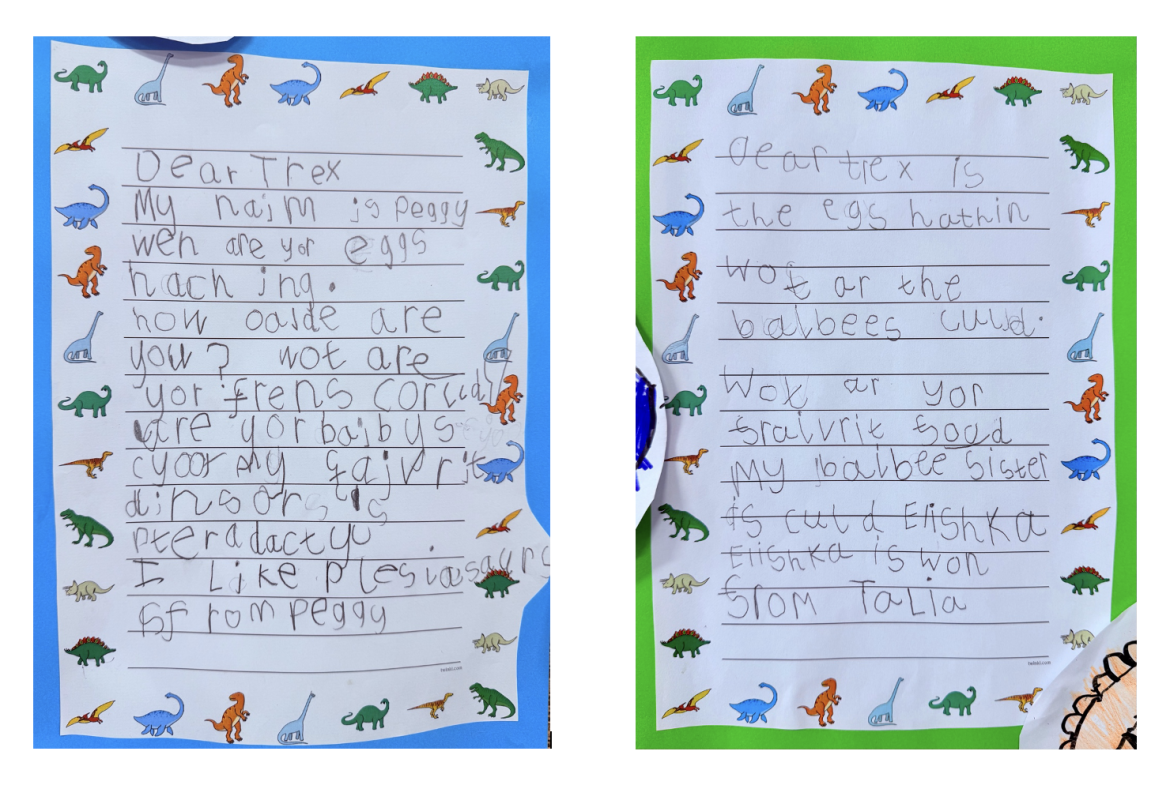 Dear Trex
My naim is peggy
wen are yor eggs
hach ing.
how oalde are
you? wot are
yor frens corlld
are yor baibys
cyoot My faivrit
dinsors is
pteradactyl
I Like plesiasaurs
from peggy
twinkl.com
Dear trex is
the egs hathin
wot ar the
baibees culd.
Wot ar yor
fraivrit food
My baibee sister
is culd Elishka
Elishka is won
from Talia
twinkl.com